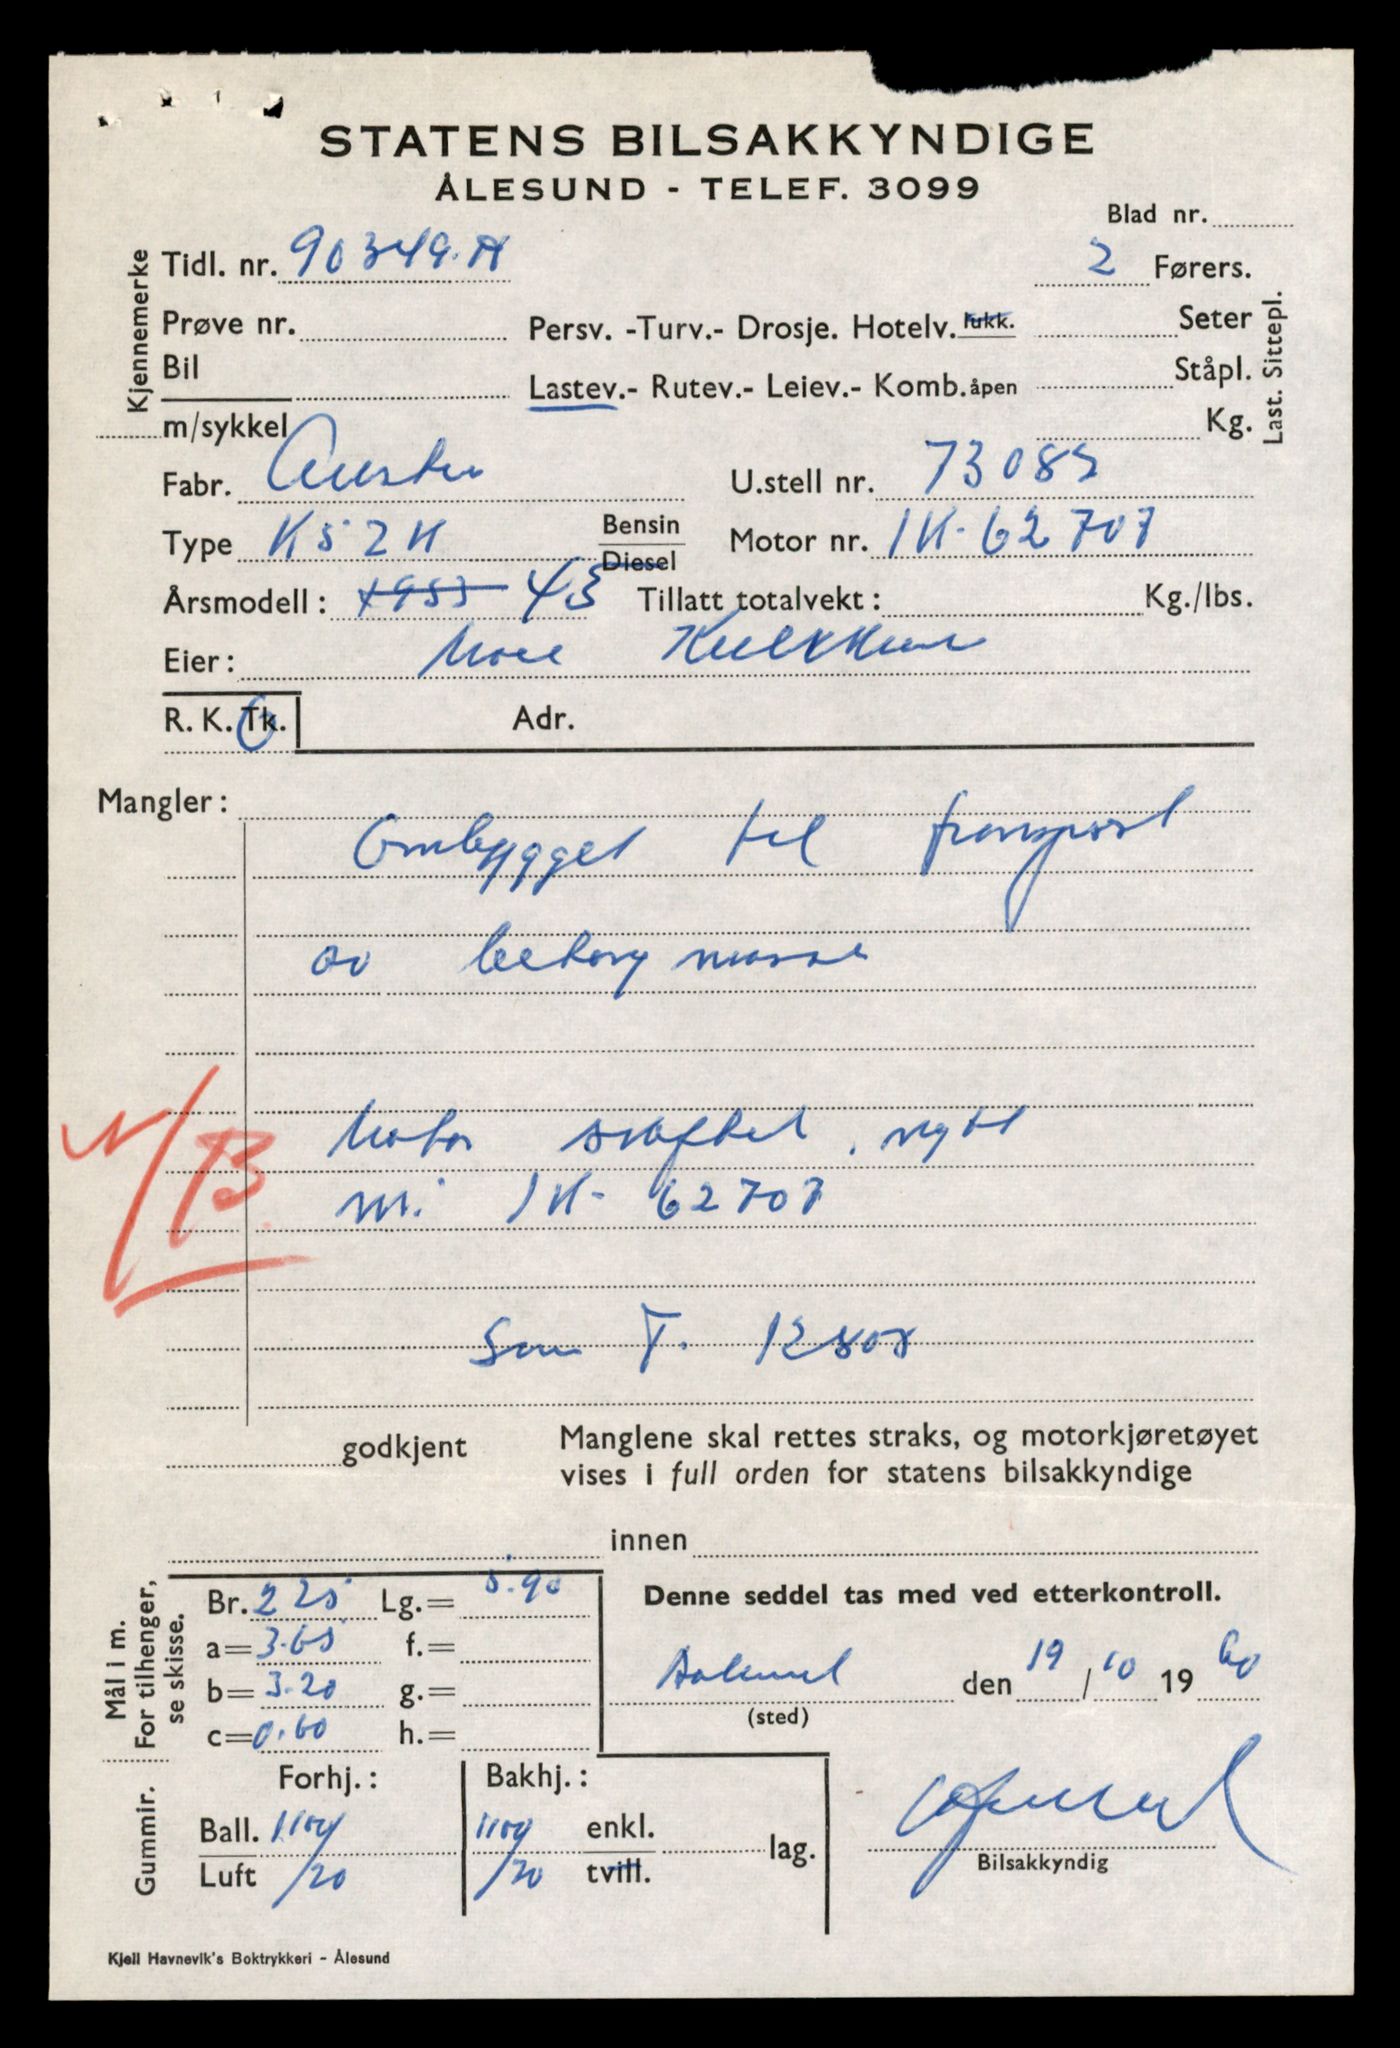 STATENS BILSAKKYNDIGE
ÅLESUND - TELEF. 3099
Blad nr.
Kjennemerke
Tidl. nr. 90349.A
2 Førers.
Prøve nr.
Persv. -Turv.- Drosje. Hotelv. lukk.
Seter
Bil
Lastev.- Rutev.- Leiev.- Komb. åpen
Ståpl.
m/sykkel
Kg.
Last. Sittepl.
Fabr. Austin
U.stell nr. 73085
Type K52K
Bensin
Diesel
Motor nr. 1K-62707
Årsmodell: 1953 43
Tillatt totalvekt:
Kg./lbs.
Eier:
R. K. Tk.
Adr.
Mangler:
Ombygget til transport
av betong masse
N/B
Motor skiftet, nytt
nr. 1K-62707
Som T. 12808
godkjent
Manglene skal rettes straks, og motorkjøretøyet
vises i full orden for statens bilsakkyndige
innen
Mål i m.
For tilhenger,
se skisse.
Br. 225 Lg.= 5.90
a= 3.65 f.=
b= 3.20 g.=
c= 0.60 h.=
Denne seddel tas med ved etterkontroll.
Aalesund den 19/10 1960
(sted)
Gummir.
Forhj.:
Bakhj.:
Ball. 1100 1100 enkl.
Luft /20 /20 tvill.
lag.
Bilsakkyndig
Kjell Havnevik's Boktrykkeri - Ålesund